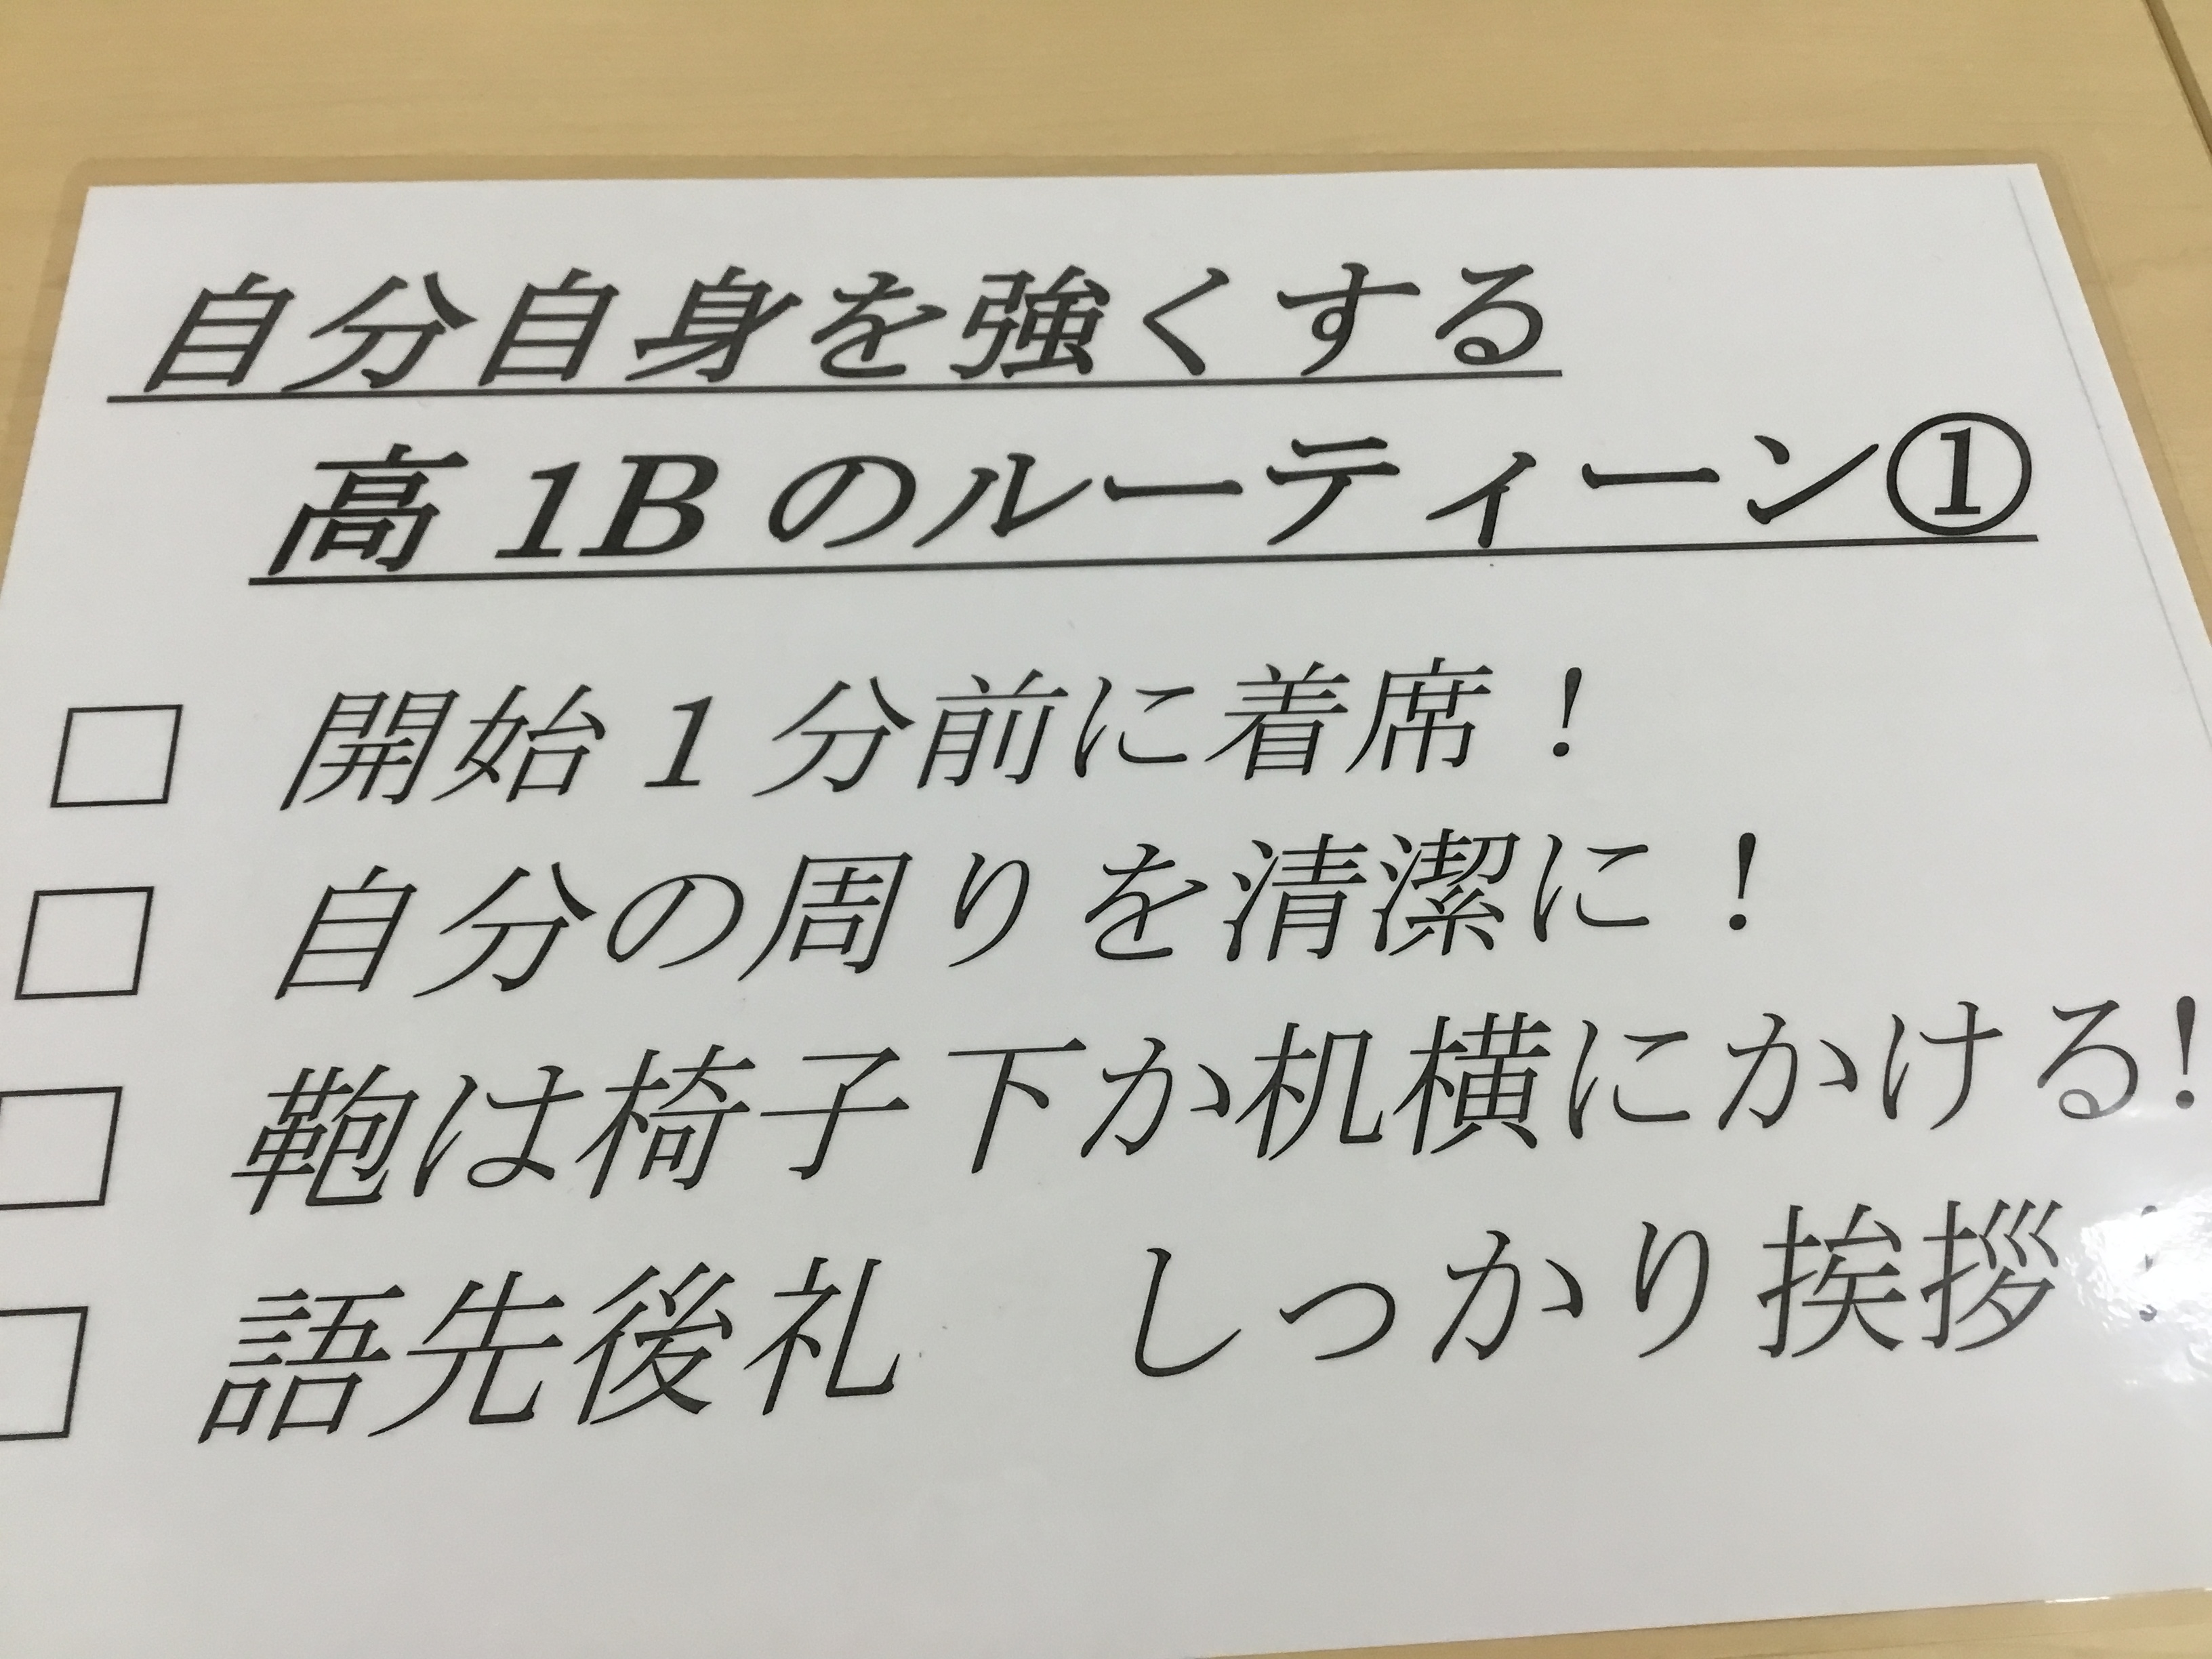 自分自身を強くする
高1Bのルーティーン①
□ 開始1分前に着席！
□ 自分の周りを清潔に！
□ 鞄は椅子下か机横にかける！
□ 語先後礼　しっかり挨拶！